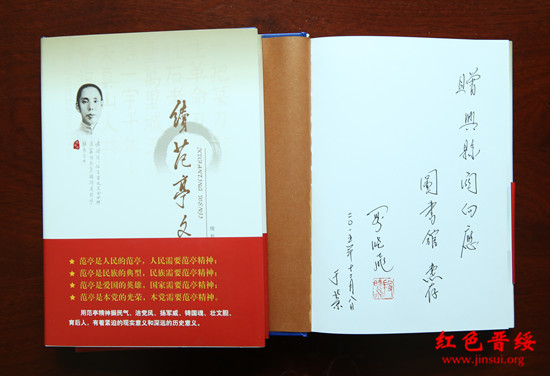 續范亭文
★ 范亭是人民的范亭，人民需要范亭精神；
★ 范亭是民族的典型，民族需要范亭精神；
★ 范亭是爱国的英雄，国家需要范亭精神；
★ 范亭是本党的光荣，本党需要范亭精神。
用范亭精神振民气、治党风、扬军威、铸国魂、壮文胆、
育后人，有着紧迫的现实意义和深远的历史意义。
贈興縣関向應
圖書館 惠存
红色晋绥
www.jinsui.org